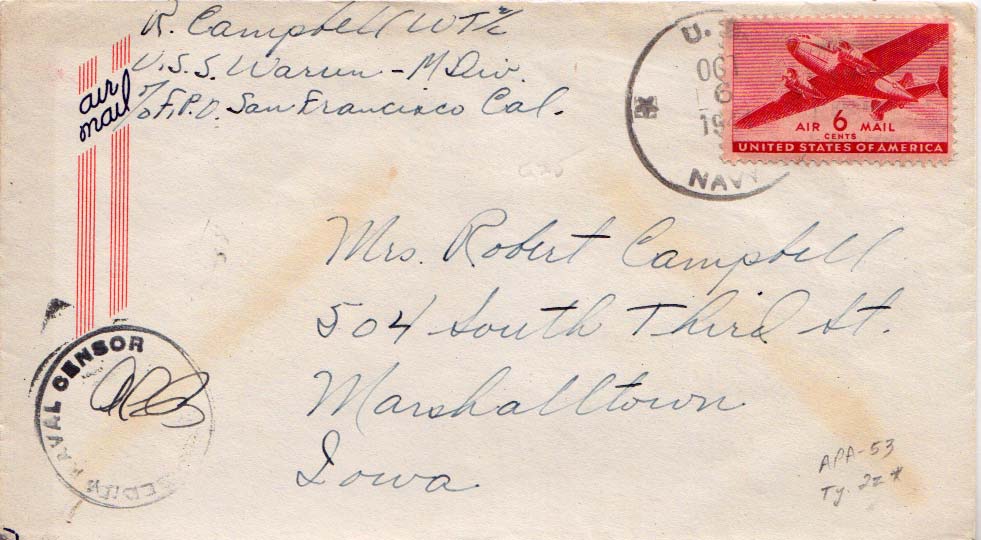 R. Campbell WT 2/c
U.S.S. Warren - M Div.
% F.P.O. San Francisco Cal.
air
mail
U.S.
OCT
6
19
NAVY
AIR 6 MAIL
CENTS
UNITED STATES OF AMERICA
Mrs. Robert Campbell
504 South Third St.
Marshalltown
Iowa.
NAVAL CENSOR
APA-53
Ty. 2z *